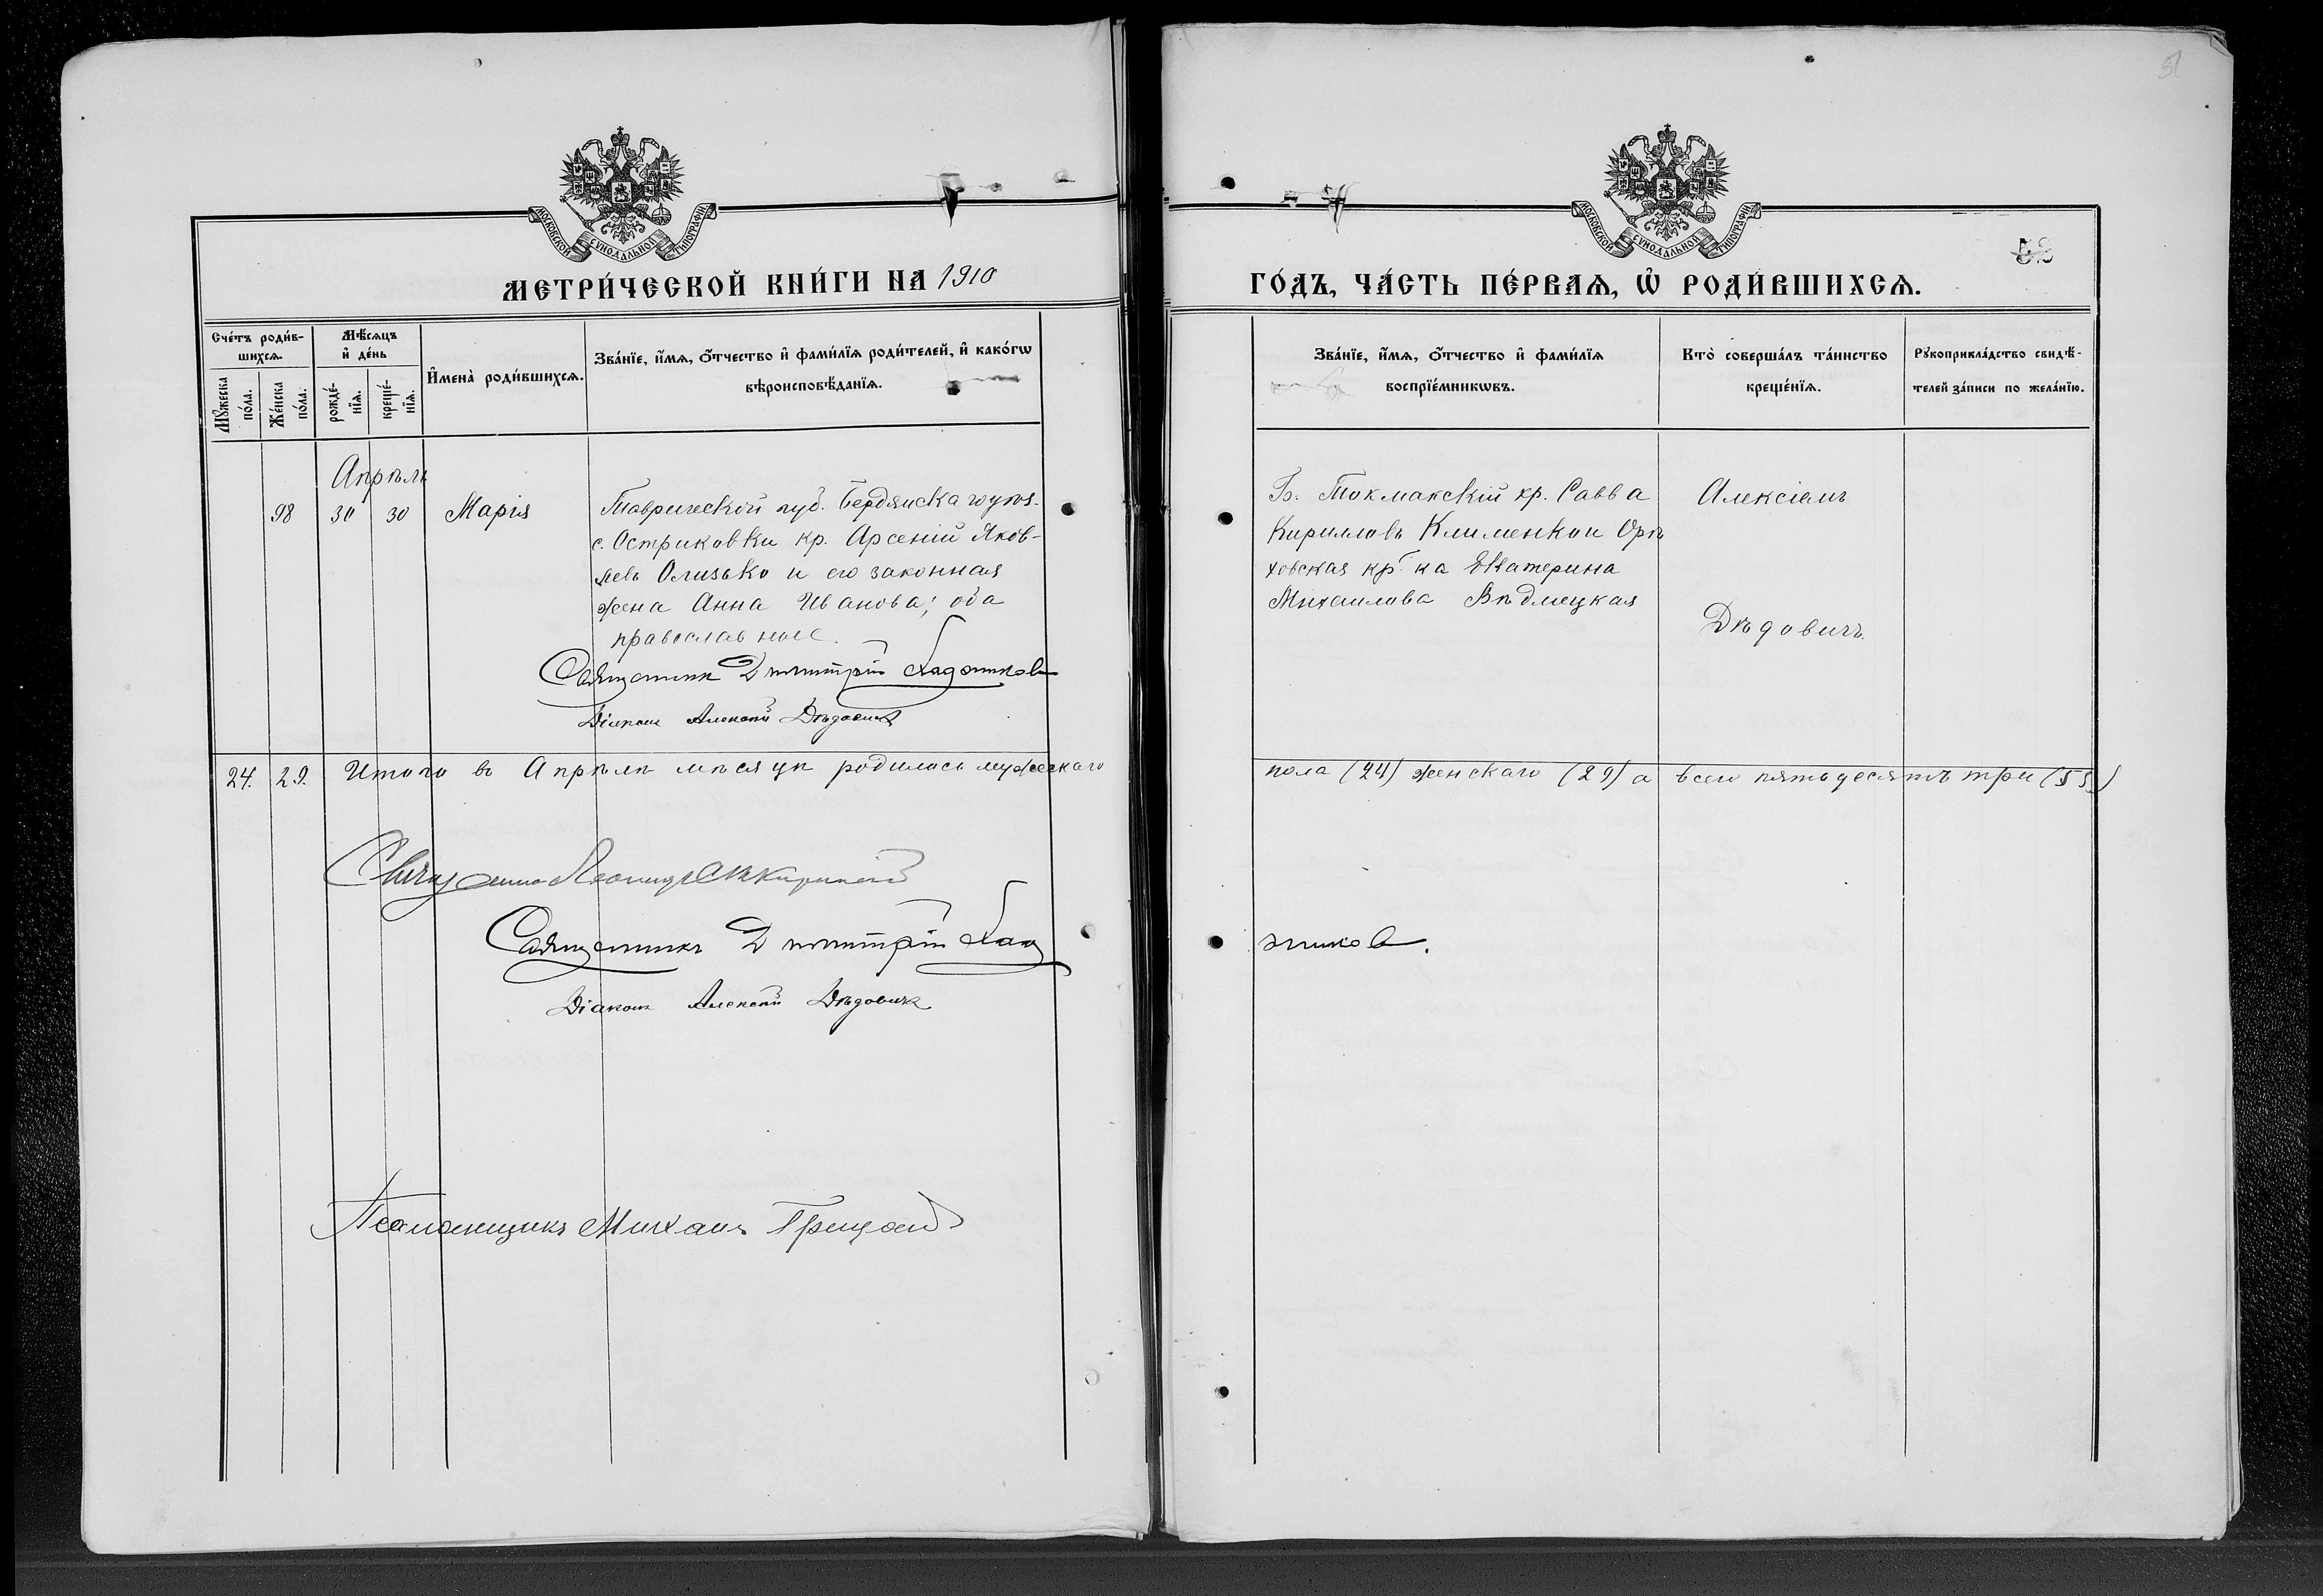 51
МОСКОВСКОЙ СѴНОДАЛЬНОЙ ТИПОГРАФІИ
МЕТРИ́ЧЕСКОЙ КНИ́ГИ НА 1910
Сче́тъ роди́в-
шихсѧ.
Мѣ́сяцъ
и҆ де́нь
Мꙋ́жеска
по́ла.
Же́нска
по́ла.
рожде́-
нїѧ.
креще́-
нїѧ.
И҆мена̀ роди́вшихсѧ.
Зва́нїе, и҆́мѧ, ѻ҆́тчество и҆ фами́лїѧ роди́телей, и҆ како́гѡ
вѣроисповѣ́данїѧ.
Апрѣль
98 30 30 Марія
Таврической губ. Бердянскаго уѣз.
с. Остриковки кр. Арсеній Яков-
левъ Олизько и его законная
жена Анна Иванова; оба
православные.
Священникъ Димитрій
Діаконъ Алексій Дѣдовичъ
24. 29. Итого въ Апрѣлѣ мѣсяцѣ родилось мужескаго
Священникъ Димитрій
Діаконъ Алексій Дѣдовичъ
Псаломщикъ Михаилъ
МОСКОВСКОЙ СѴНОДАЛЬНОЙ ТИПОГРАФІИ
52
ГО́ДЪ, ЧА́СТЬ ПЕ́РВАѦ, Ѡ҆ РОДИ́ВШИХСѦ.
Зва́нїе, и҆́мѧ, ѻ҆́тчество и҆ фами́лїѧ
воспрїе́мникѡвъ.
Кто̀ соверша́лъ та́инство
креще́нїѧ.
Рꙋкоприкла́дство свидѣ́-
телей за́писи по жела́нїю.
Б. Токмакскій кр. Савва
Кирилловъ Клименко и Орѣ
ховская кр-ка Екатерина
Михаилова Вѣдмецкая
Алексіемъ
Дѣдовичъ.
пола (24) женскаго (29) а всего пятьдесятъ три (53)
никовъ.